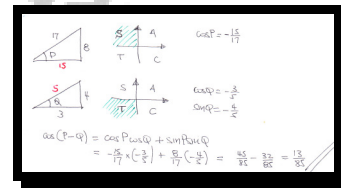 17
8
P
15
S A
T C
cosP = -15/17
5
4
Q
3
S A
T C
cosQ = -3/5
sinQ = -4/5
cos (P-Q) = cosP cosQ + sinP sinQ
= -15/17 × (-3/5) + 8/17 (-4/5) = 45/85 - 32/85 = 13/85